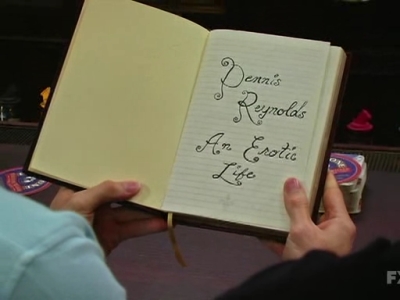 Dennis
Reynolds
An Erotic
Life
FX